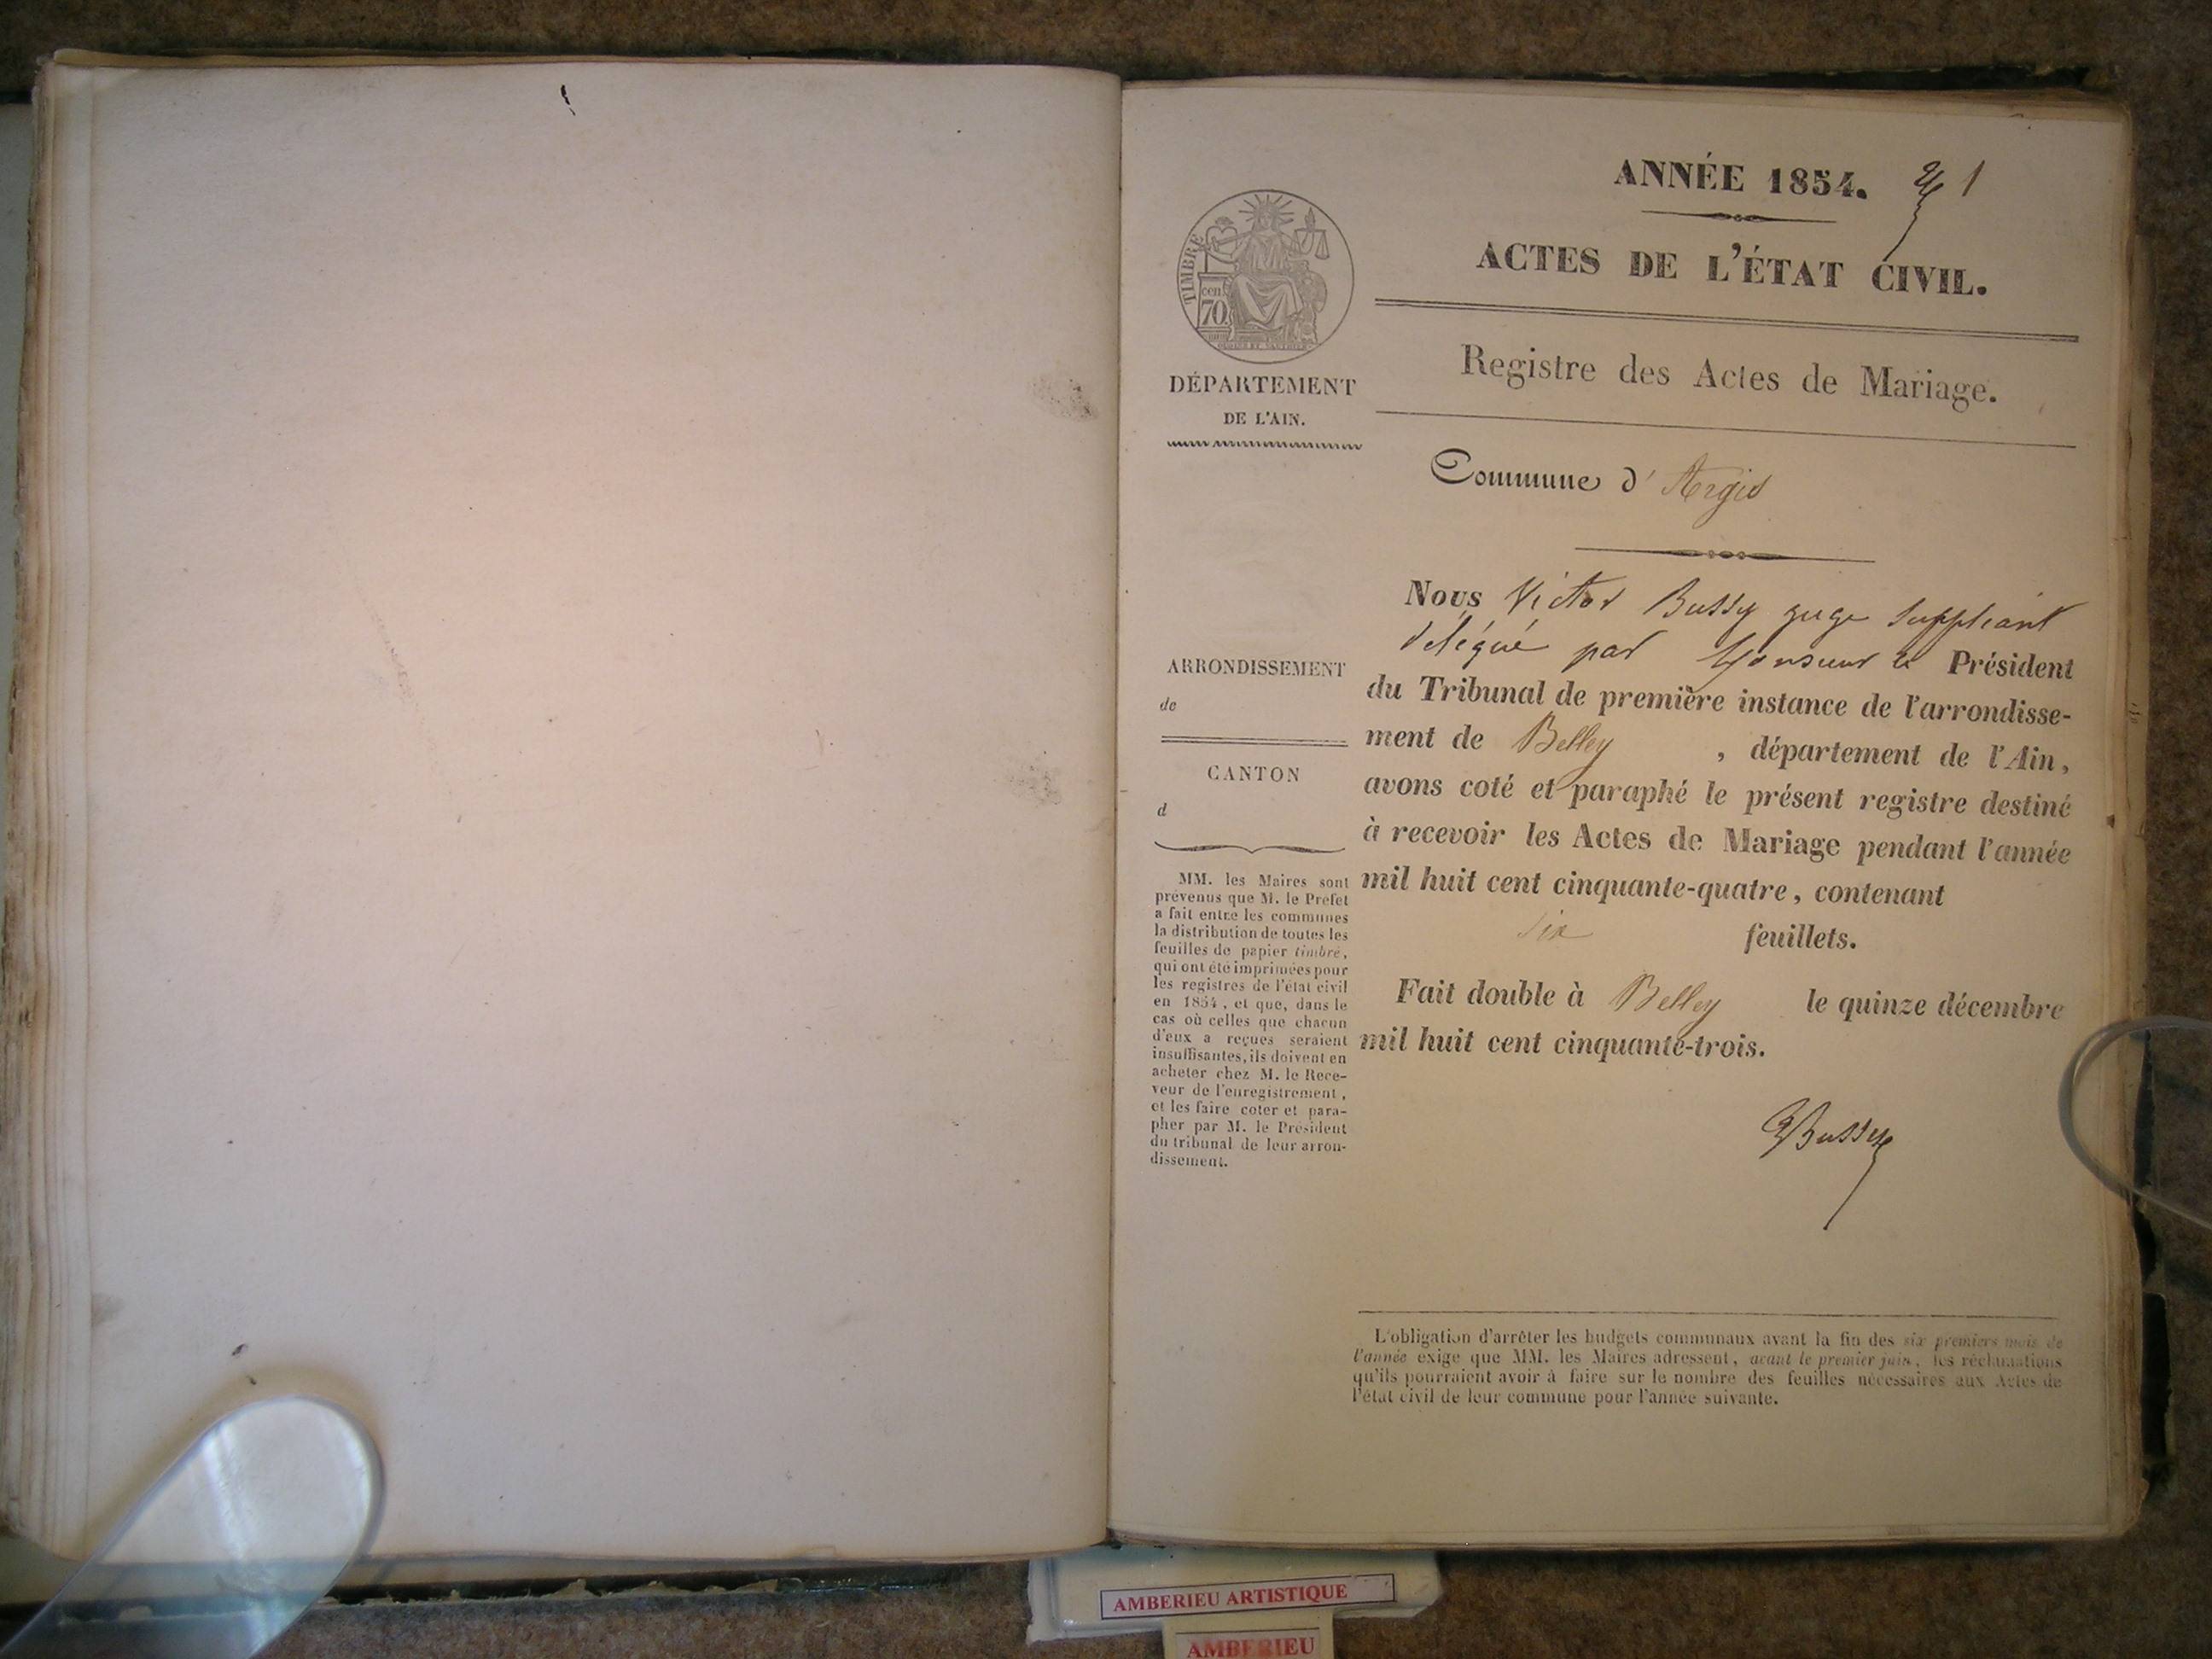 ANNÉE 1854. 1
ACTES DE L'ÉTAT CIVIL.
Registre des Actes de Mariage.
TIMBRE
cen.
70
DÉPARTEMENT
DE L'AIN.
Commune d'Argis
Nous Victor Bussy juge suppléant
délégué par Monsieur le Président
du Tribunal de première instance de l'arrondisse-
ment de Belley , département de l'Ain,
avons coté et paraphé le présent registre destiné
à recevoir les Actes de Mariage pendant l'année
mil huit cent cinquante-quatre, contenant
six feuillets.
Fait double à Belley le quinze décembre
mil huit cent cinquante-trois.
Bussy
ARRONDISSEMENT
de
CANTON
d
MM. les Maires sont
prévenus que M. le Préfet
a fait entre les communes
la distribution de toutes les
feuilles de papier timbré,
qui ont été imprimées pour
les registres de l'état civil
en 1854, et que, dans le
cas où celles que chacun
d'eux a reçues seraient
insuffisantes, ils doivent en
acheter chez M. le Rece-
veur de l'enregistrement,
et les faire coter et para-
pher par M. le Président
du tribunal de leur arron-
dissement.
L'obligation d'arrêter les budgets communaux avant la fin des six premiers mois de
l'année exige que MM. les Maires adressent, avant le premier juin, les réclamations
qu'ils pourraient avoir à faire sur le nombre des feuilles nécessaires aux Actes de
l'état civil de leur commune pour l'année suivante.
AMBERIEU ARTISTIQUE
AMBERIEU